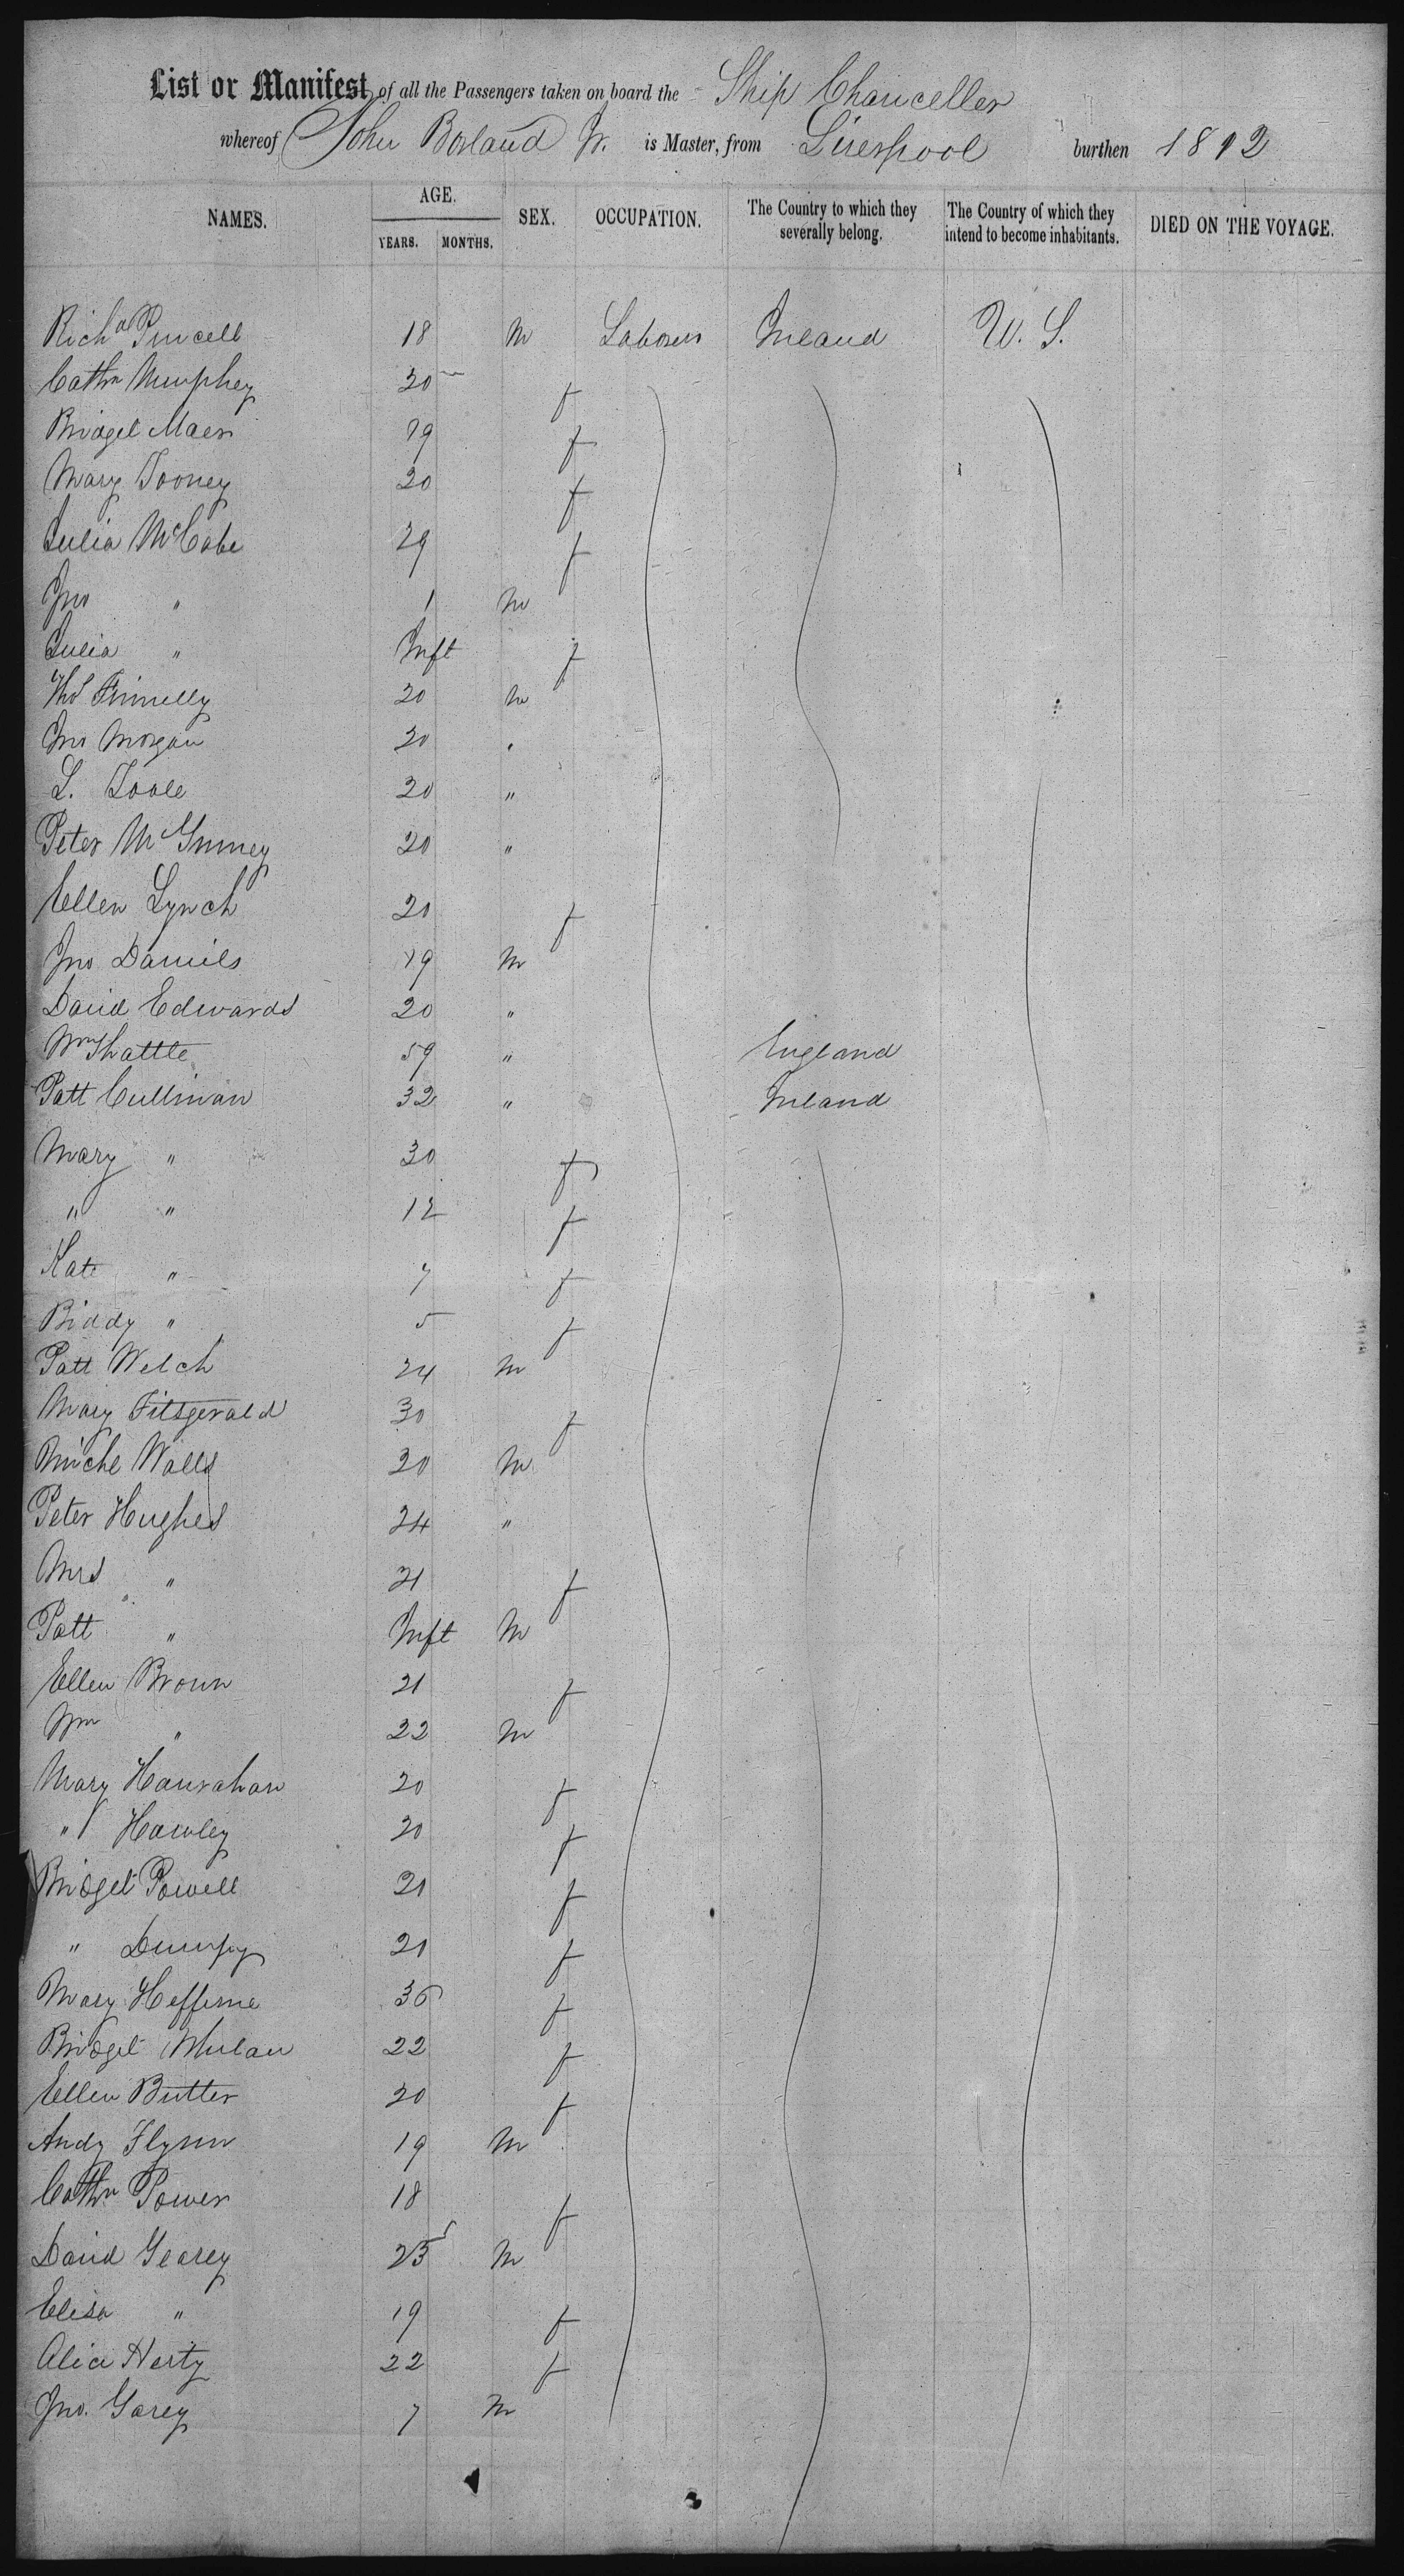 List or Manifest of all the Passengers taken on board the Ship Chanceller
whereof John Borland Jr. is Master, from Liverpool burthen 1812
NAMES. AGE. YEARS. MONTHS. SEX. OCCUPATION. The Country to which they severally belong. The Country of which they intend to become inhabitants. DIED ON THE VOYAGE.
Richd Purcell 18 M Laborer Ireland U. S.
Cathn Murphey 20 f
Bridget Maer 19 f
Mary Tooney 20 f
Julia McCabe 29 f
Jno " 1 m
Julia " Inft f
Thos Finnelly 20 m
Jno Morgan 20 "
L. Toole 20 "
Peter Mc 20 "
Ellen Lynch 20 f
Jno Daniels 19 M
David Edwards 20 "
Wm Thattle 59 " England
Patt Cullinan 32 " Ireland
Mary " 30 f
" " 12 f
Kate " 7 f
Biddy " 5 f
Patt Welch 24 m
Mary Fitsgerald 30 f
Miche Walls 20 M
Peter Hughes 24 "
Mrs " 21 f
Patt " Inft M
Ellen Brown 21 f
Wm " 22 M
Mary Hanrahan 20 f
" Hawley 20 f
Bridget Powell 21 f
" Dunphy 21 f
Mary Hefferne 36 f
Bridget Whelan 22 f
Ellen Butter 20 f
Andy Flynn 19 M
Cathn Power 18 f
David Gearey 25 M
Elisa " 19 f
Alice Herty 22 f
Jno. Garey 7 M